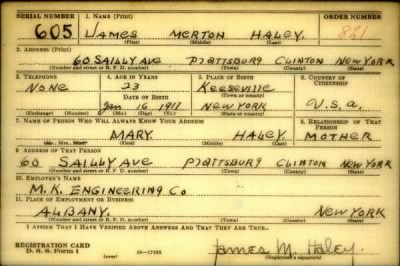 SERIAL NUMBER 1. NAME (Print) ORDER NUMBER
605 JAMES MERTON HALEY 891
(First) (Middle) (Last)
2. ADDRESS (Print)
60 SAILLY AVE PLATTSBURG CLINTON NEW YORK
(Number and street or R. F. D. number) (Town) (County) (State)
3. TELEPHONE 4. AGE IN YEARS 5. PLACE OF BIRTH 6. COUNTRY OF CITIZENSHIP
NONE 23 KEESEVILLE
DATE OF BIRTH (Town or county)
JAN 16 1917 NEW YORK U.S.A.
(Exchange) (Number) (Mo.) (Day) (Yr.) (State or country)
7. NAME OF PERSON WHO WILL ALWAYS KNOW YOUR ADDRESS 8. RELATIONSHIP OF THAT PERSON
MARY HALEY MOTHER
(Mr., Mrs., Miss) (First) (Middle) (Last)
9. ADDRESS OF THAT PERSON
60 SAILLY AVE PLATTSBURG CLINTON NEW YORK
(Number and street or R. F. D. number) (Town) (County) (State)
10. EMPLOYER'S NAME
M.K. ENGINEERING CO
11. PLACE OF EMPLOYMENT OR BUSINESS
ALBANY NEW YORK
(Number and street or R. F. D. number) (Town) (County) (State)
I AFFIRM THAT I HAVE VERIFIED ABOVE ANSWERS AND THAT THEY ARE TRUE.
REGISTRATION CARD
D. S. S. Form 1 (over) 16-17105 James M. Haley